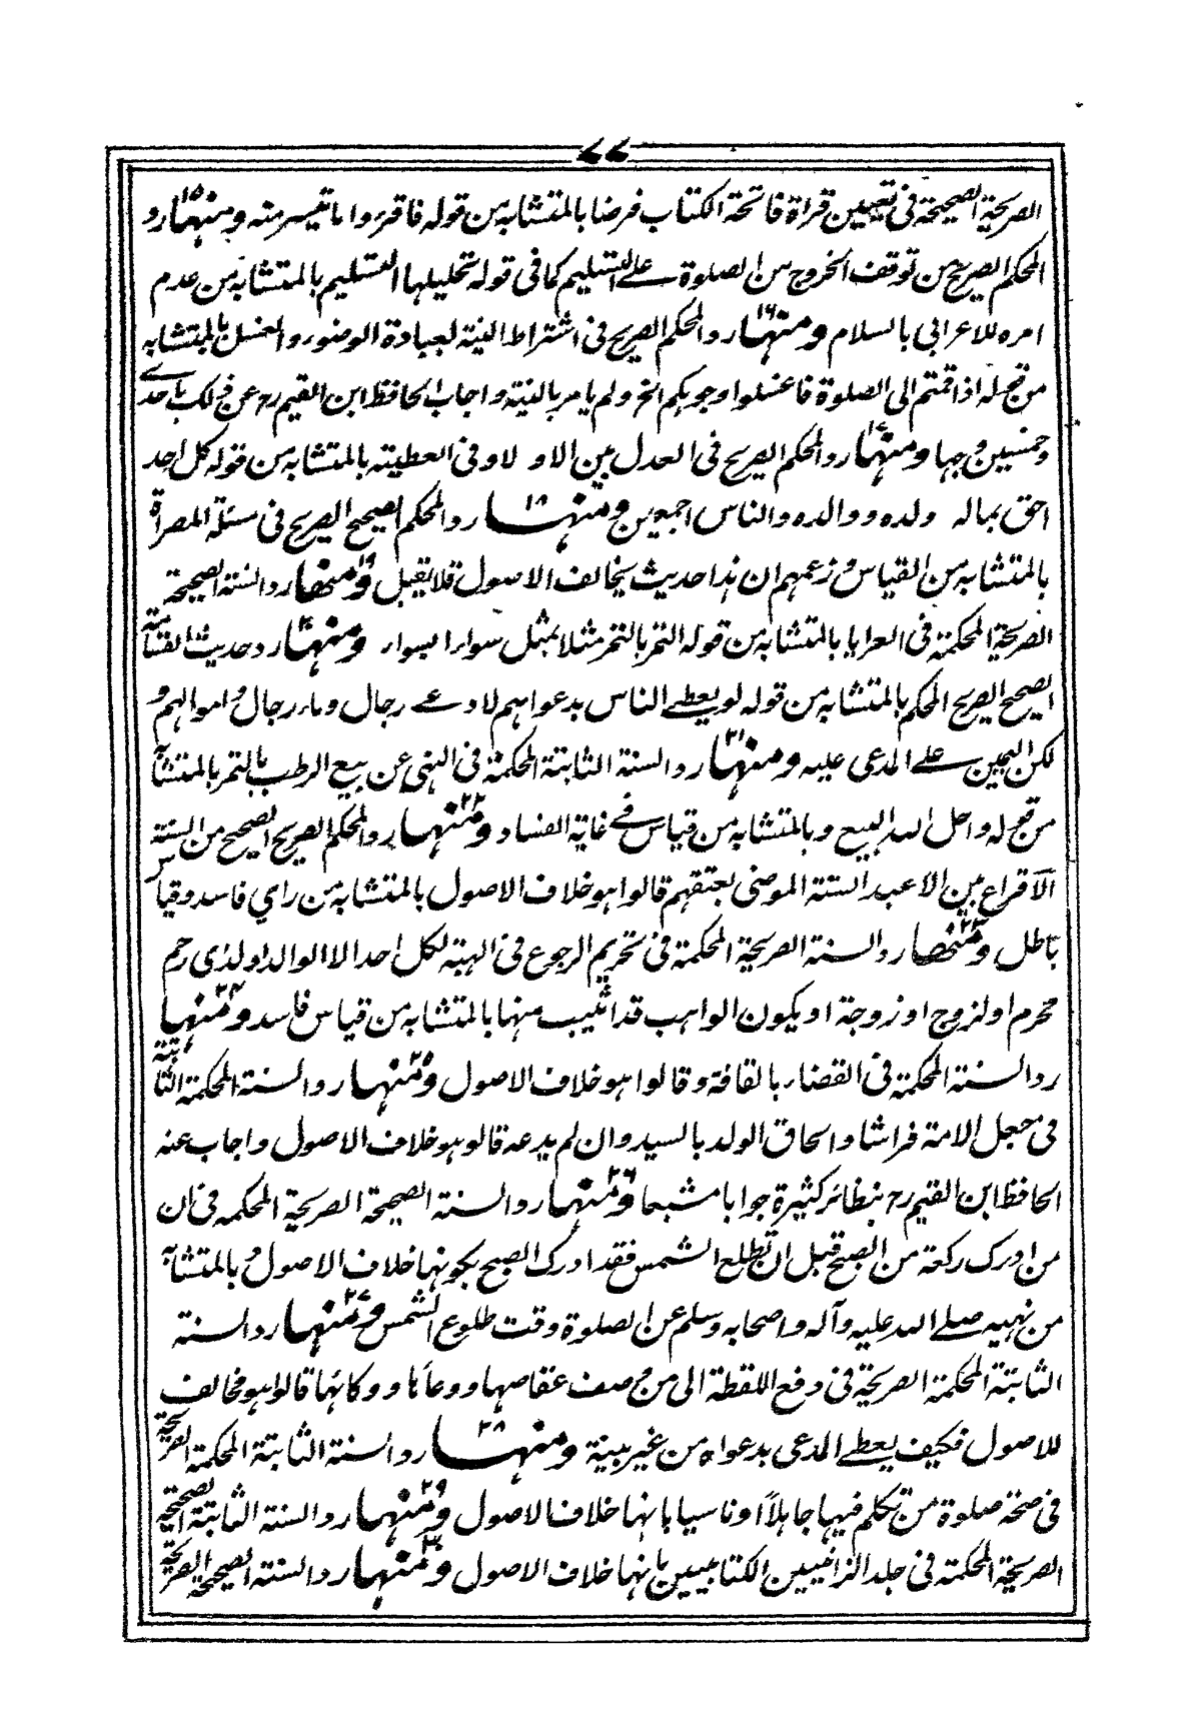 ٧٧
الصريحة الصحيحة فى تعيين قراة فاتحة الكتاب فرضا بالمتشابه من قوله فاقرءوا ما تيسر منه ومنها ١٥ رد
المحكم الصريح من توقف الخروج من الصلوة على التسليم كما فى قوله تحليلها التسليم بالمتشابه من عدم
امره للاعرابى بالسلام ومنها ١٦ رد المحكم الصريح فى اشتراط النية لعبادة الوضوء والغسل بالمتشابه
من قوله اذا قمتم الى الصلوة فاغسلوا وجوهكم الخ ولم يامر بالنية واجاب الحافظ ابن القيم رح عن ذلك باحدے
وخمسين وجها ومنها ١٧ رد المحكم الصريح فى العدل بين الاولاد فى العطية بالمتشابه من قوله كل احد
احق بماله ولده ووالده والناس اجمعين ومنها ١٨ رد المحكم الصحيح الصريح فى مسئلة المصراة
بالمتشابه من القياس وزعمهم ان هذا حديث يخالف الاصول فلا يقبل ومنها ١٩ رد السنة الصحيحة
الصريحة المحكمة فى العرايا بالمتشابه من قوله التمر بالتمر مثلا بمثل سواء بسواء ومنها ٢٠ رد حديث القسامة
الصحيح الصريح المحكم بالمتشابه من قوله لو يعطے الناس بدعواهم لادعے رجال دماء رجال واموالهم و
لكن اليمين علے المدعى عليه ومنها ٢١ رد السنة الثابتة المحكمة فى النهى عن بيع الرطب بالتمر بالمتشابه
من قوله واحل الله البيع وبالمتشابه من قياس فے غاية الفساد ومنها ٢٢ رد المحكم الصريح الصحيح من السنة
الاقراع بين الاعبد الستة الموصى بعتقهم قالوا هو خلاف الاصول بالمتشابه من راي فاسد وقياس
باطل ومنها ٢٣ رد السنة الصريحة المحكمة فى تحريم الرجوع فى الهبة لكل احد الا الوالد او لذى رحم
محرم او لزوج او زوجة او يكون الواهب قد اثيب منها بالمتشابه من قياس فاسد ومنها ٢٤
رد السنة المحكمة فى القضاء بالقافة وقالوا هو خلاف الاصول ومنها ٢٥ رد السنة المحكمة الثابتة
فى جعل الامة فراشا والحاق الولد بالسيد وان لم يدعه قالو هو خلاف الاصول واجاب عنه
الحافظ ابن القيم رح بنظائر كثيرة جوابا مشبعا ومنها ٢٦ رد السنة الصحيحة الصريحة المحكمه فى ان
من ادرك ركعة من الصبح قبل ان تطلع الشمس فقد ادرك الصبح بكونها خلاف الاصول وبالمتشابه
من نهيه صلے الله عليه وآله واصحابه وسلم عن الصلوة وقت طلوع الشمس ومنها ٢٧ رد السنة
الثابتة المحكمة الصريحة فى دفع اللقطة الى من وصف عفاصها ووعاءها ووكائها قالوا هو مخالف
للاصول فكيف يعطے المدعى بدعواه من غير بينة ومنها ٢٨ رد السنة الثابتة المحكمة الصريحة
فى صحة صلوة من تكلم فيها جاهلاً او ناسيا بانها خلاف الاصول ومنها ٢٩ رد السنة الثابتة الصحيحة
الصريحة المحكمة فى جلد الزانيين الكتابيين بانها خلاف الاصول ومنها ٣٠ رد السنة الصحيحة الصريحة